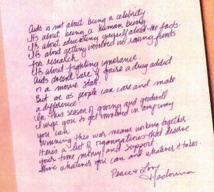 Aids is not about being a celebrity
It's about being a human being
It's about educating yourself about the facts.
It's about getting involved in raising funds
for research
It's about fighting ignorance
Aids doesn't care if you're a drug addict
or a movie star.
But we as people can care and make
a difference.
In this season of giving and goodwill
I urge you to get involved in any way
you can.
Winning this war means working together
Here's a list of organizations that deserve
your time money and support
Give whatever you can and whatever it takes.
Peace & love
Madonna